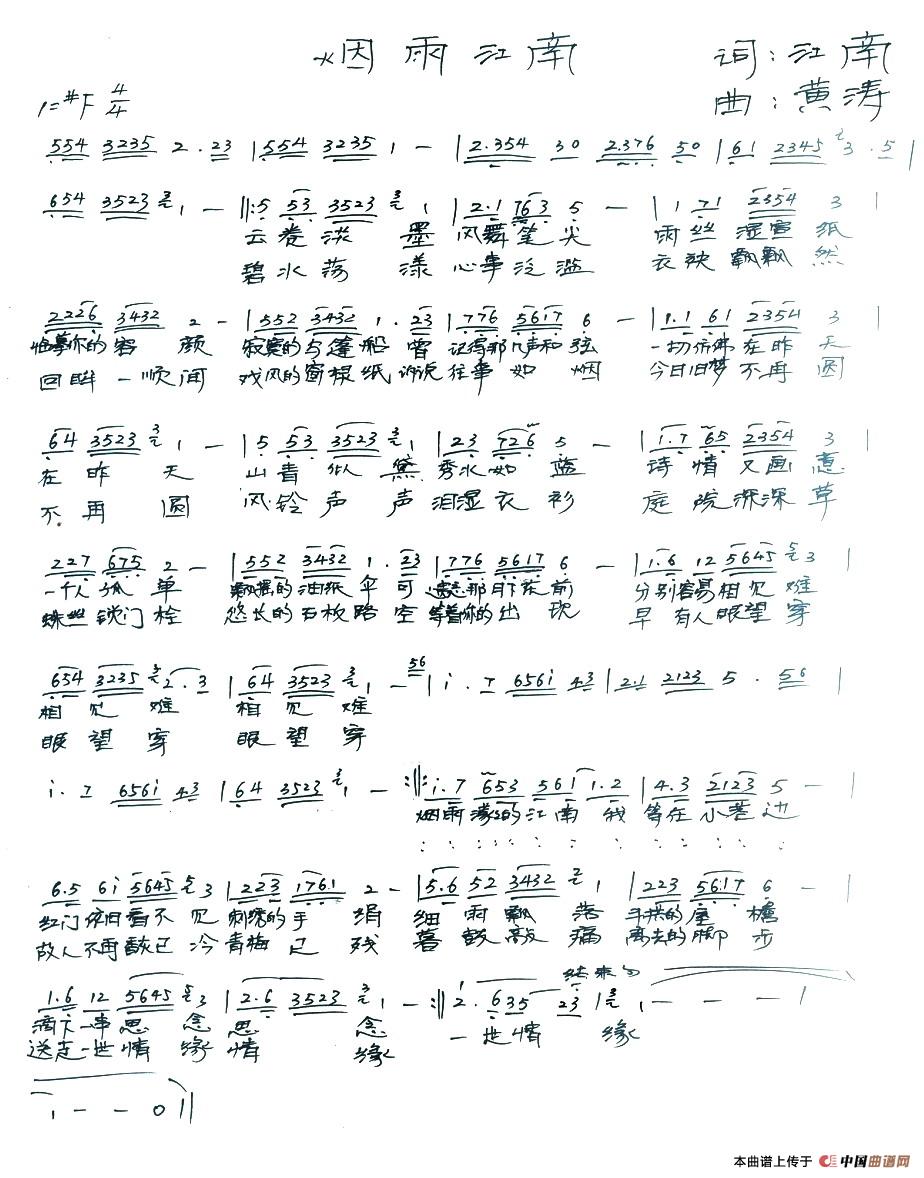 烟雨江南 词:江南
1=#F 4/4 曲:黄涛
554 3235 2·23 | 554 3235 1 - | 2·354 30 2·376 50 | 61 2345 3·5 |
654 3523 1 - ‖: 5 53 3523 1 | 2·1 763 5 - | 1 71 2354 3 |
云卷淡墨 风舞笔尖 雨丝湿宣纸
碧水荡漾 心事泛滥 衣袂飘飘然
2226 3432 2 - | 552 3432 1·23 | 776 5617 6 - | 1·1 61 2354 3 |
临摹你的容颜 寂寞的乌篷船曾记得那几声和弦 一切仿佛在昨天
回眸一顺间 戏风的窗棂纸诉说往事如烟 今日旧梦不再圆
64 3523 1 - | 5 53 3523 1 | 23 726 5 - | 1·7 65 2354 3 |
在昨天 山青似黛 秀水如蓝 诗情又画意
不再圆 风铃声声 泪湿衣衫 庭院深深草
227 675 2 - | 552 3432 1·23 | 776 5617 6 - | 1·6 12 5645 3 |
一个人孤单 飘摇的油纸伞可 那月下花前 分别容易相见难
蛛丝锁门栓 悠长的石板路空等着你的出现 早有人眼望穿
654 3235 2·3 | 64 3523 1 - 56 | i·7 656i 43 | 2·1 2123 5·56 |
相见难 相见难
眼望穿 眼望穿
i·7 656i 43 | 64 3523 1 - :‖: i·7 653 561 1·2 | 4·3 2123 5 - |
烟雨濛濛的江南 我等在小巷边
6·5 6i 5645 3 | 223 1761 2 - | 5·6 52 3432 1 | 223 5617 6 - |
红门依旧看不见刺绣的手绢 细雨飘落斗拱的屋檐
故人不再酝已冷青梅已残 暮鼓敲痛离去的脚步
1·6 12 5645 3 | 2·6 3523 1 - :‖ 2·635 23 | 1 - - - | 结束句
滴下一串思念思念 一世情缘
送走一世情缘情缘
1 - - 0 ‖
本曲谱上传于 中国曲谱网